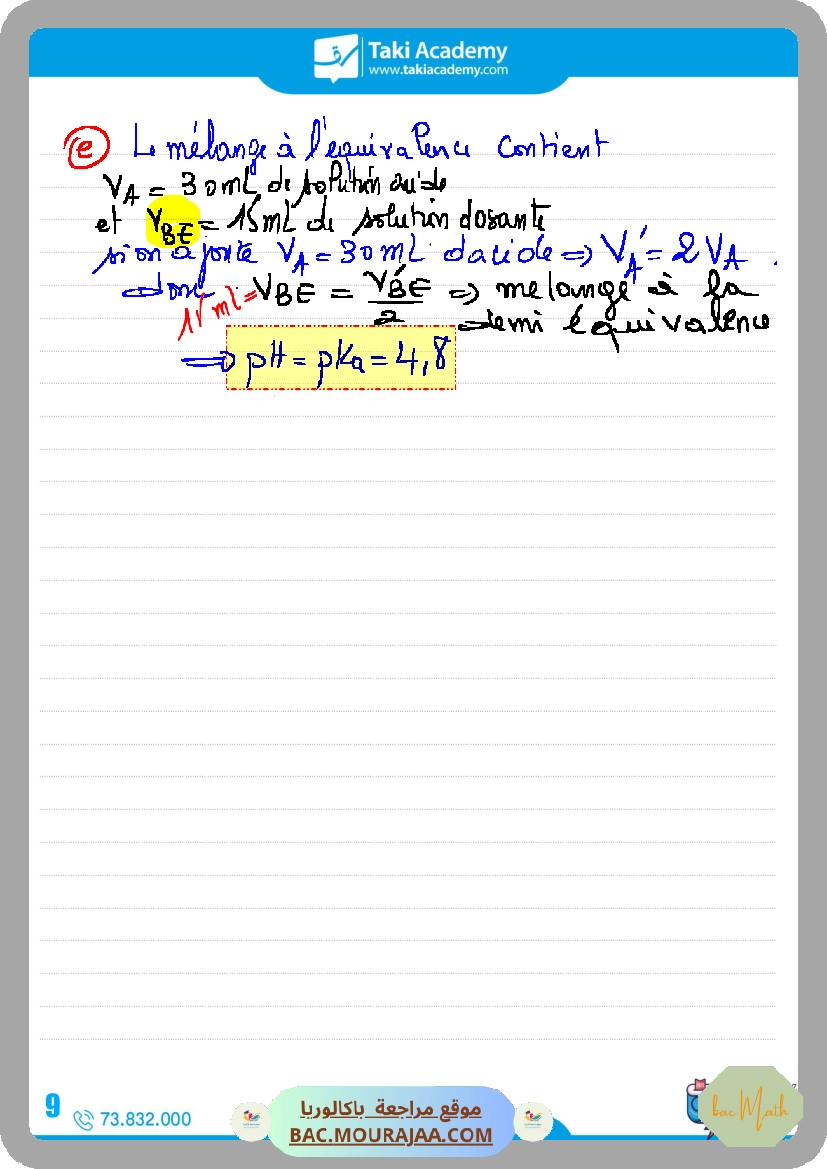 Taki Academy
www.takiacademy.com
e Le mélange à l'équivalence contient
VA = 30mL de solution acide
et VBE = 15mL de solution dosante
si on ajoute VA = 30mL d'acide => V'A = 2VA .
donc VBE = V'BE/2 => mélange à la
15 ml =
demi équivalence
=> pH = pKa = 4,8
9
73.832.000
موقع مراجعة باكالوريا
BAC.MOURAJAA.COM
bac Math